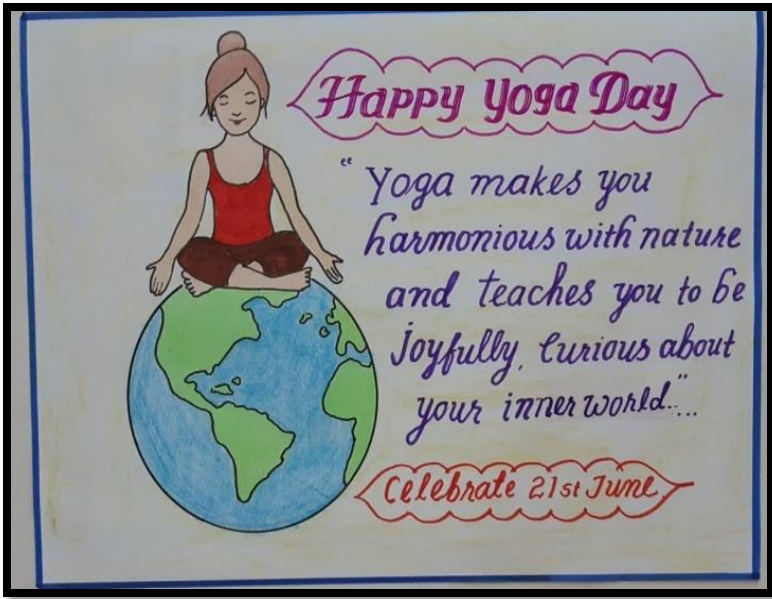 Happy Yoga Day
“Yoga makes you
harmonious with nature
and teaches you to be
joyfully, Curious about
your inner world..”...
Celebrate 21st June